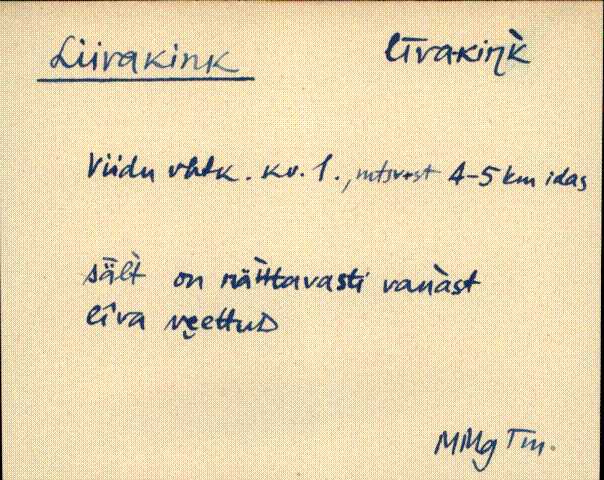 Liivakink līvakiŋ̀k
Viidu vhtk. kv. 1., mtsvest 4-5 km idas
sält̀ on nähttavasti vanàst
līva veettuD
MMg Tm.